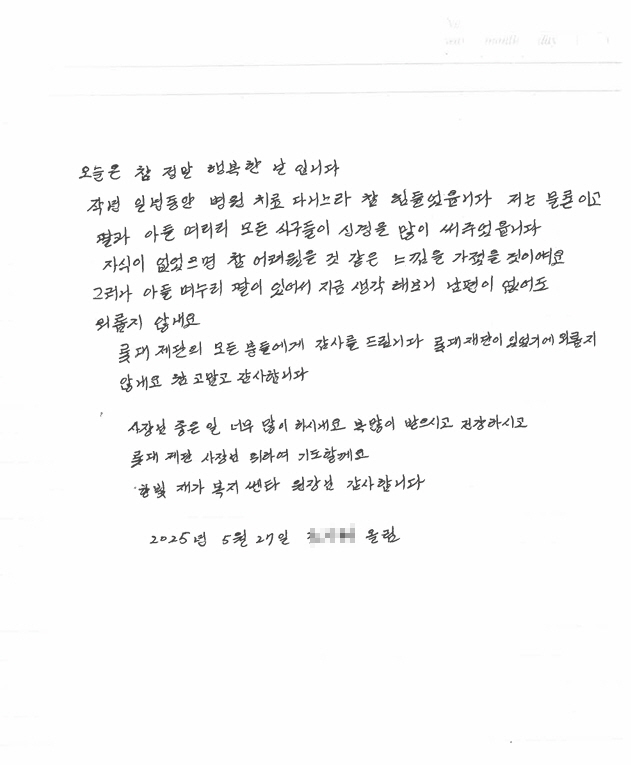 month day
오늘은 참 정말 행복한 날 입니다
작년 일년동안 병원 치료 다니느라 참 힘들었읍니다 저는 물론이고
딸과 아들 며리리 모든 식구들이 신경을 많이 써주었읍니다
자식이 없었으면 참 어려웠을 것 같은 느낌을 가졌을 것이여요
그러나 아들 며누리 딸이 있어서 지금 생각 해보니 남편이 없어도
외롭지 않내요
롯대 재단의 모든 분들에게 감사를 드립니다 롯대 재단이 있었기에 외롭지
않내요 참 고맙고 감사합니다
사장님 좋은 일 너무 많이 하시내요 복많이 받으시고 건강하시고
롯대 재단 사장님 위하여 기도할께요
한빛 재가 복지 쎈타 원장님 감사합니다
2025년 5월 27일 올림